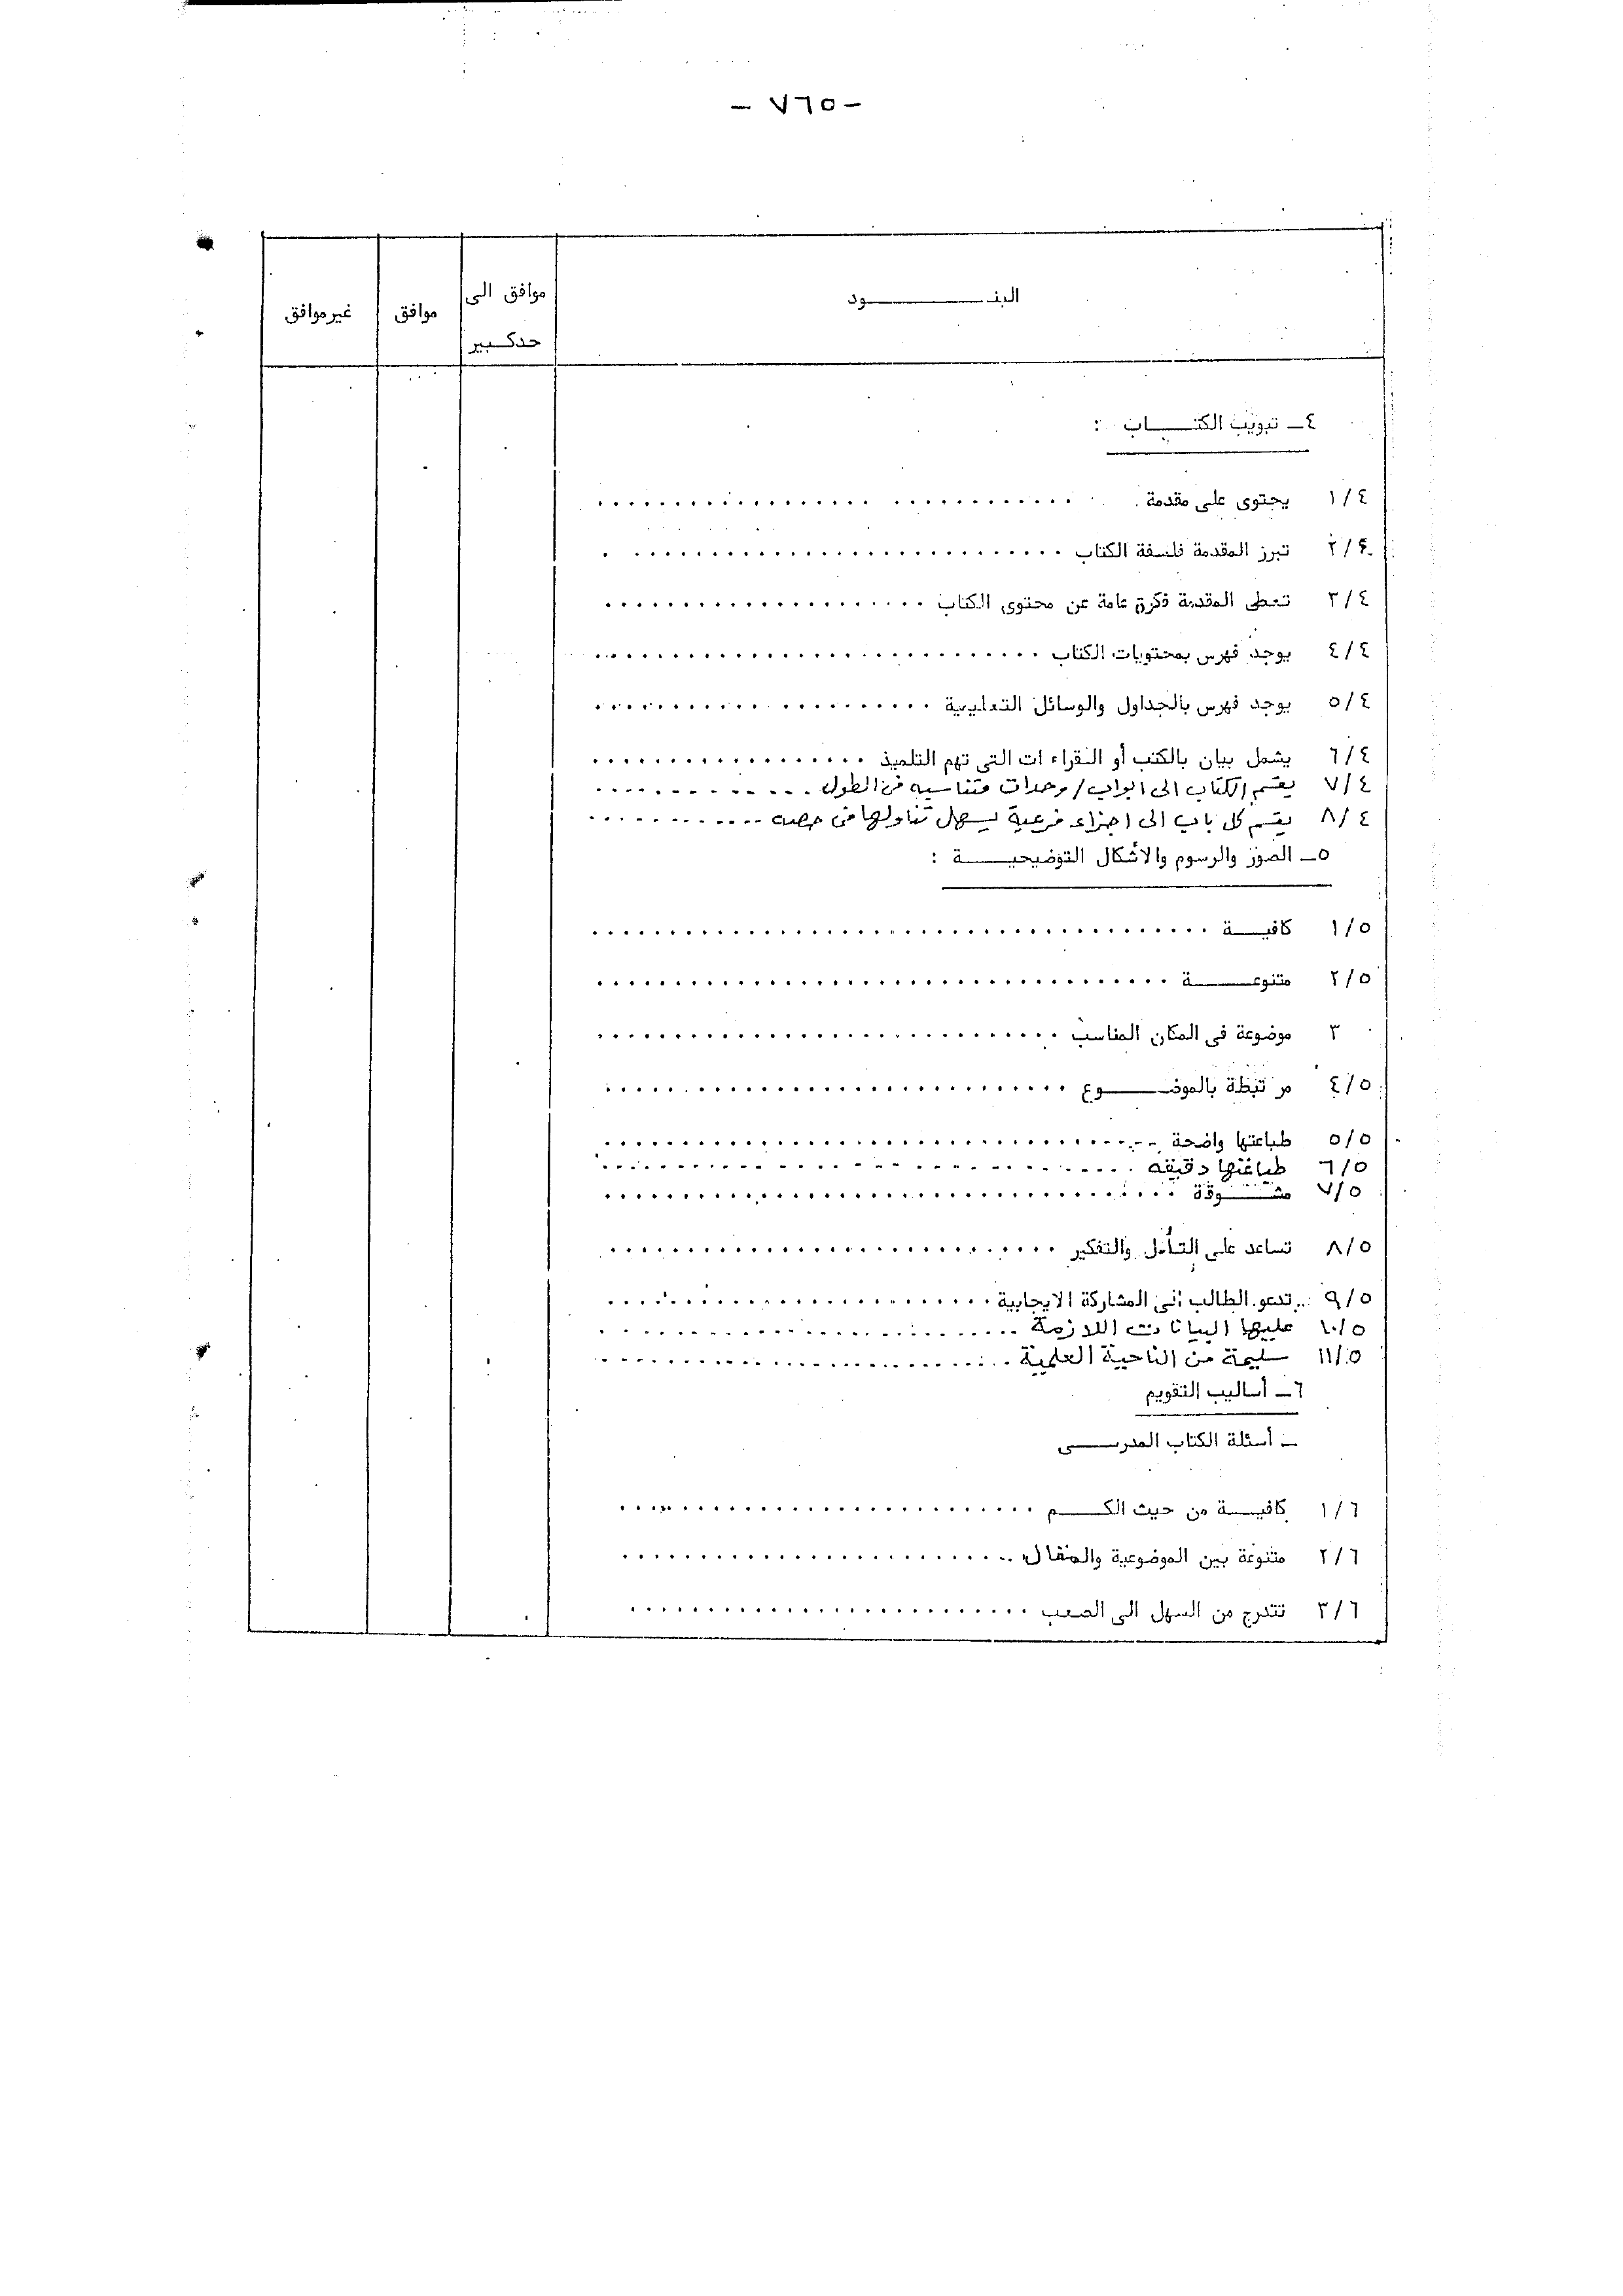 - ٧٦٥ -
البنـــــــــود
موافق الى حدكـبير
موافق
غيرموافق
٤ـ تبويب الكتـــاب :
١/٤ يحتوى على مقدمة
٢/٤ تبرز المقدمة فلسفة الكتاب
٣/٤ تعطى المقدمة فكرة عامة عن محتوى الكتاب
٤/٤ يوجد فهرس بمحتويات الكتاب
٥/٤ يوجد فهرس بالجداول والوسائل التعليمية
٦/٤ يشمل بيان بالكتب أو القراءات التى تهم التلميذ
٧/٤ يقسم الكتاب الى ابواب/ وحدات متناسبه فى الطول
٨/٤ يقسم كل باب الى اجزاء فرعية يسهل تناولها فى حصه
٥ـ الصور والرسوم والأشكال التوضيحيـــة :
١/٥ كافيــة
٢/٥ متنوعــــة
٣ موضوعة فى المكان المناسب
٤/٥ مرتبطة بالموضـــوع
٥/٥ طباعتها واضحة
٦/٥ طباعتها دقيقه
٧/٥ مشـــوقة
٨/٥ تساعد على التأمل والتفكير
٩/٥ تدعو الطالب الى المشاركة الايجابية
١٠/٥ عليها البيانات اللازمة
١١/٥ سليمة من الناحية العلمية
٦ـ أساليب التقويم
ـ أسئلة الكتاب المدرســـى
١/٦ كافيــة من حيث الكــــم
٢/٦ متنوعة بين الموضوعية والمقال
٣/٦ تتدرج من السهل الى الصعب